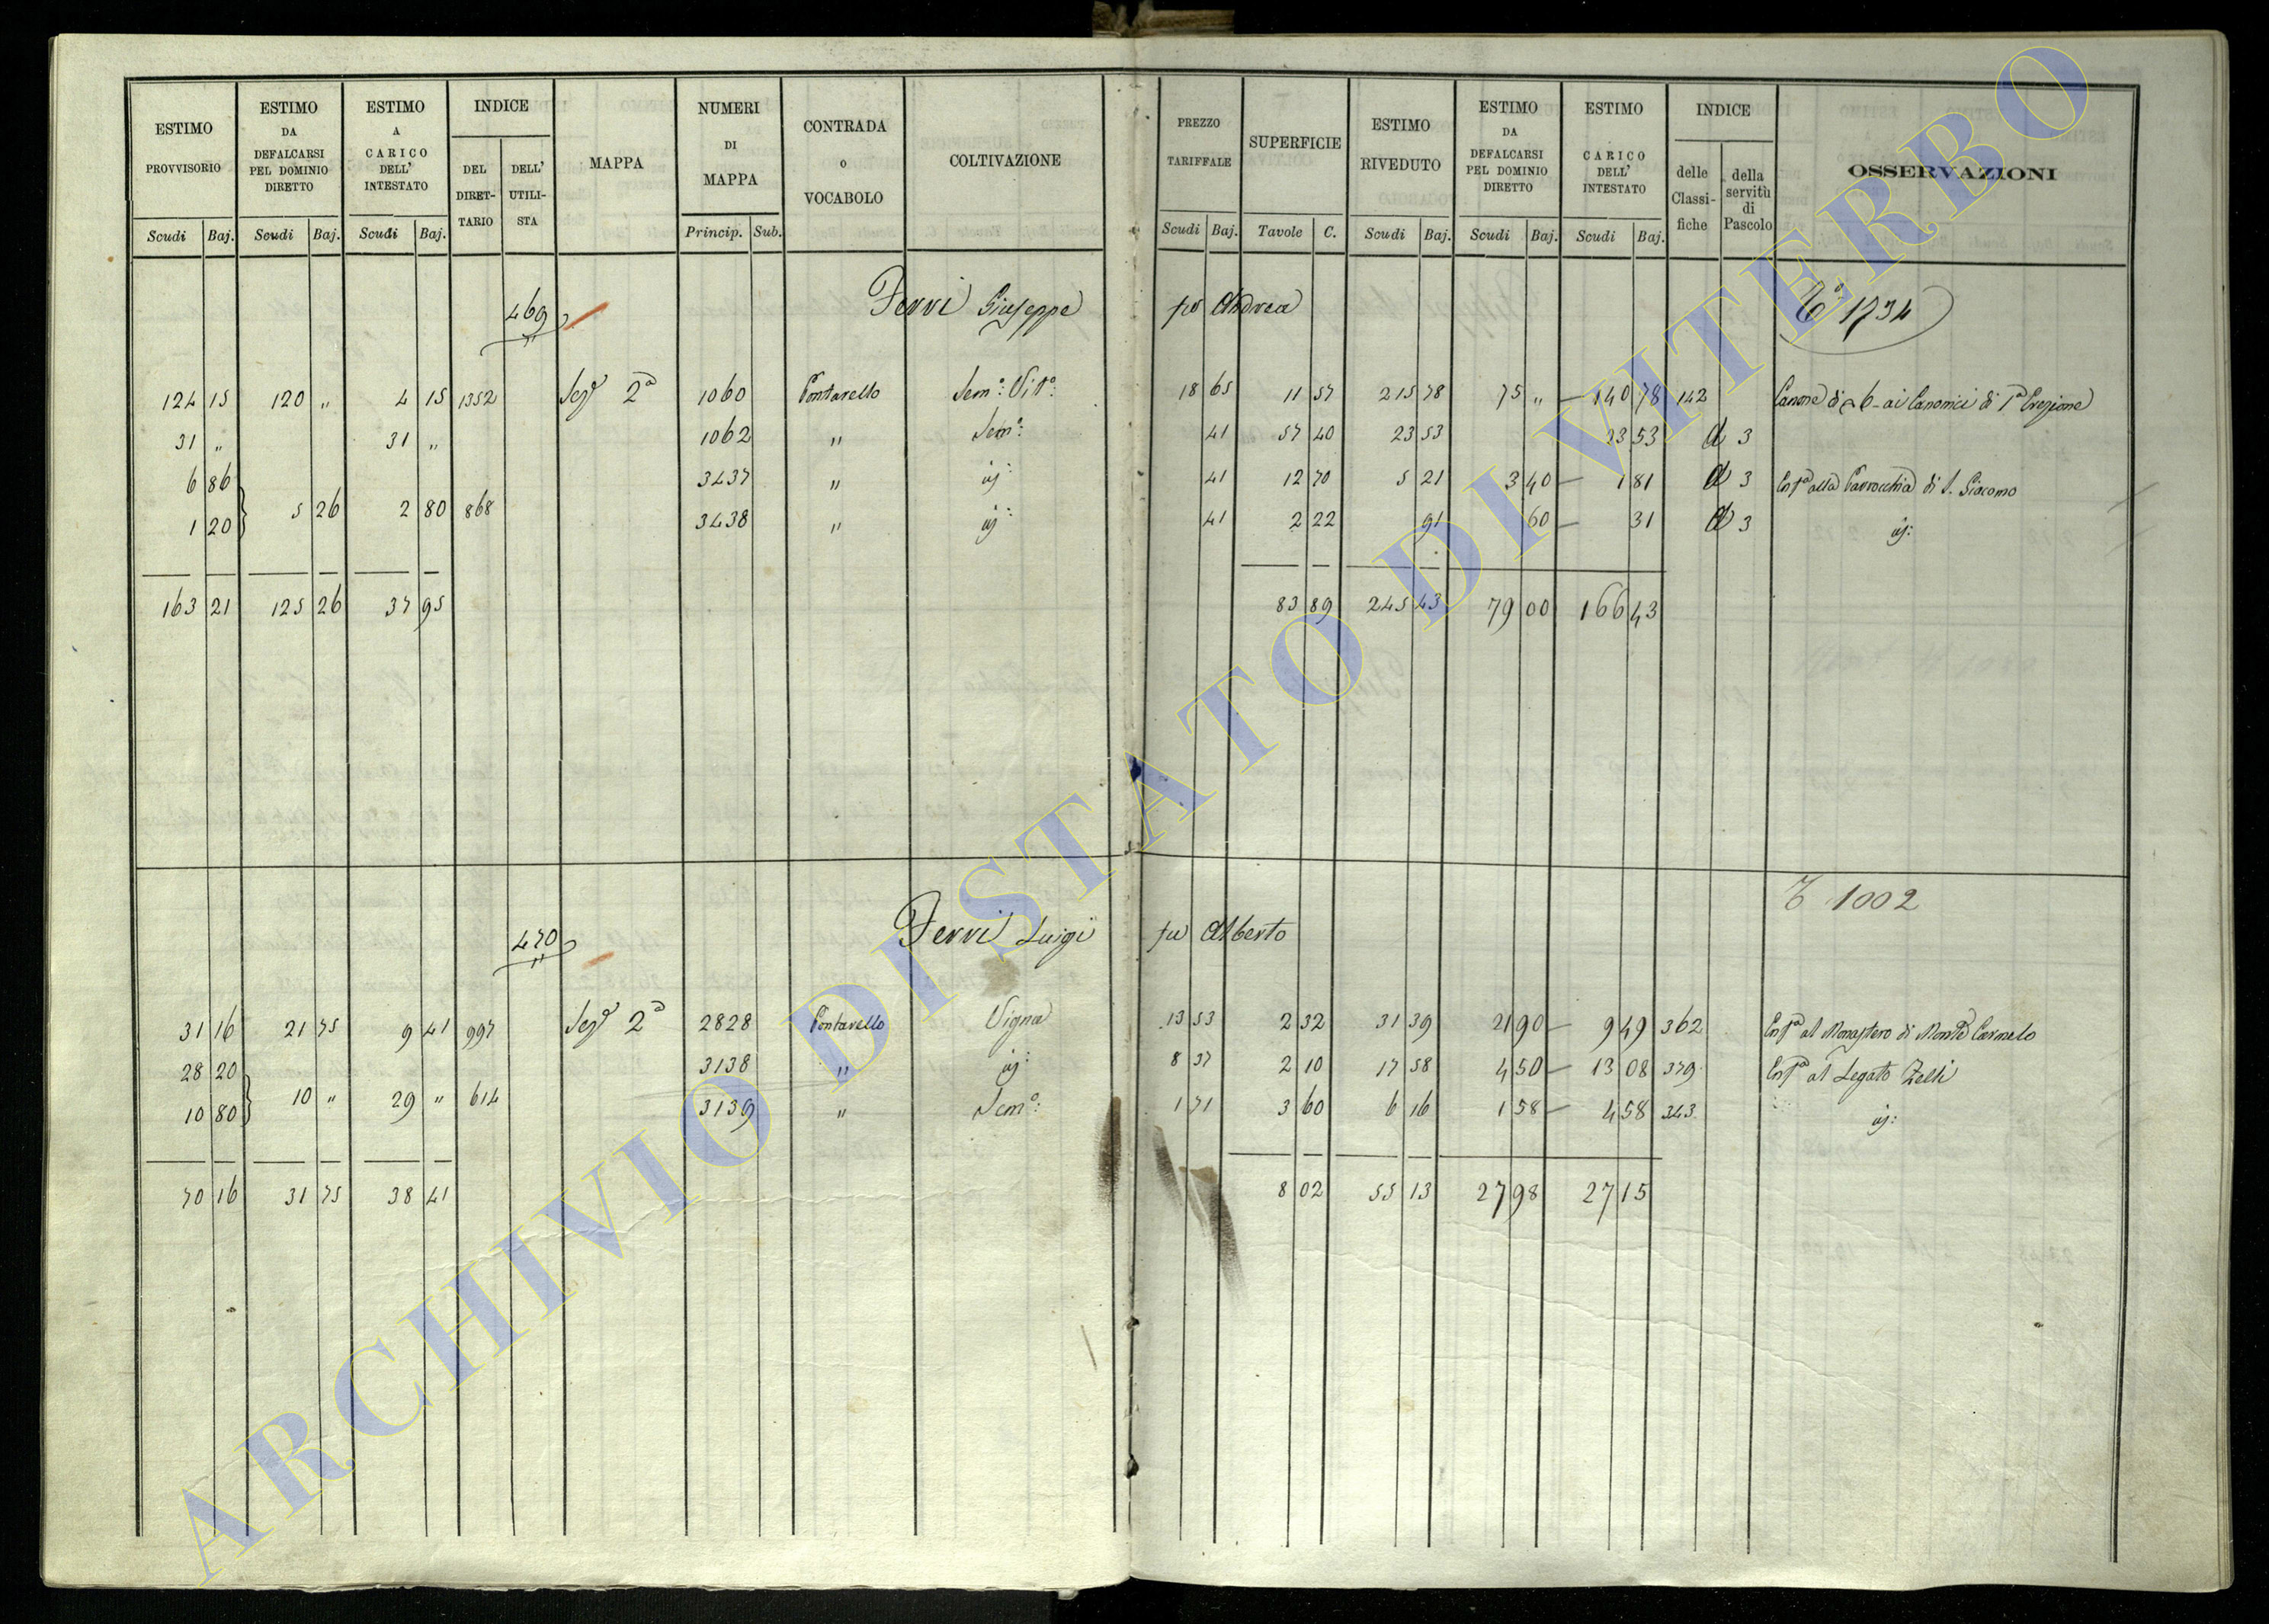 ESTIMO PROVVISORIO | ESTIMO DA DEFALCARSI PEL DOMINIO DIRETTO | ESTIMO A CARICO DELL' INTESTATO | INDICE | MAPPA | NUMERI DI MAPPA | CONTRADA o VOCABOLO | COLTIVAZIONE | PREZZO TARIFFALE | SUPERFICIE | ESTIMO RIVEDUTO | ESTIMO DA DEFALCARSI PEL DOMINIO DIRETTO | ESTIMO A CARICO DELL' INTESTATO | INDICE | OSSERVAZIONI
DEL DIRET-TARIO | DELL' UTILI-STA | delle Classi-fiche | della servitù di Pascolo
Scudi Baj. | Scudi Baj. | Scudi Baj. | Princip. Sub. | Scudi Baj. | Tavole C. | Scudi Baj. | Scudi Baj. | Scudi Baj.
469 Ferri Giuseppe fu Andrea 1734
124 15 | 120 " | 4 15 | 1352 | Sez.e 2a | 1060 | Pontarello | Sem.o: Vit.o: | 18 65 | 11 57 | 215 78 | 75 " | 140 78 | 142 | Canone di 6 ai Canonici di 1a Erezione
31 " | 31 " | 1062 | " | Sem.o: | 41 | 57 40 | 23 53 | 23 53 | d 3
6 86 | 3437 | " | | 41 | 12 70 | 5 21 | 3 40 | 1 81 | d 3 | alla Parrocchia di S. Giacomo
5 26 | 2 80 | 868
1 20 | 3438 | " | | 41 | 2 22 | 91 | 60 | 31 | d 3
163 21 | 125 26 | 37 95 | 83 89 | 245 43 | 79 00 | 166 43
1002
470 Ferri Luigi fu Alberto
31 16 | 21 75 | 9 41 | 997 | Sez.e 2a | 2828 | Pontarello | Vigna | 13 53 | 2 32 | 31 39 | 21 90 | 9 49 | 362 | al Monastero di Monte Carmelo
28 20 | 3138 | " | | 8 37 | 2 10 | 17 58 | 4 50 | 13 08 | 379 | al Legato Zelli
10 " | 29 " | 614
10 80 | 3139 | " | Sem.o: | 1 71 | 3 60 | 6 16 | 1 58 | 4 58 | 343
70 16 | 31 75 | 38 41 | 8 02 | 55 13 | 27 98 | 27 15
ARCHIVIO DI STATO DI VITERBO